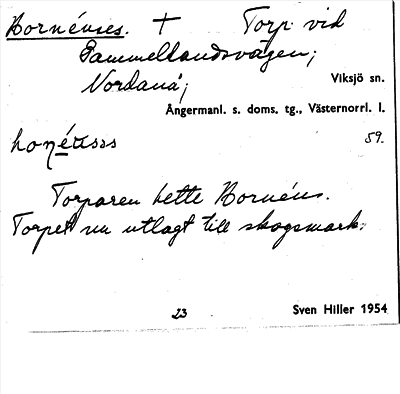 Bornéuses. † Torp vid
Gammellandsvägen;
Nordanå;
Viksjö sn.
Ångermanl. s. doms. tg., Västernorrl. l.
59.
Torparen hette Bornéus.
Torpet nu utlagt till skogsmark.
23
Sven Hiller 1954